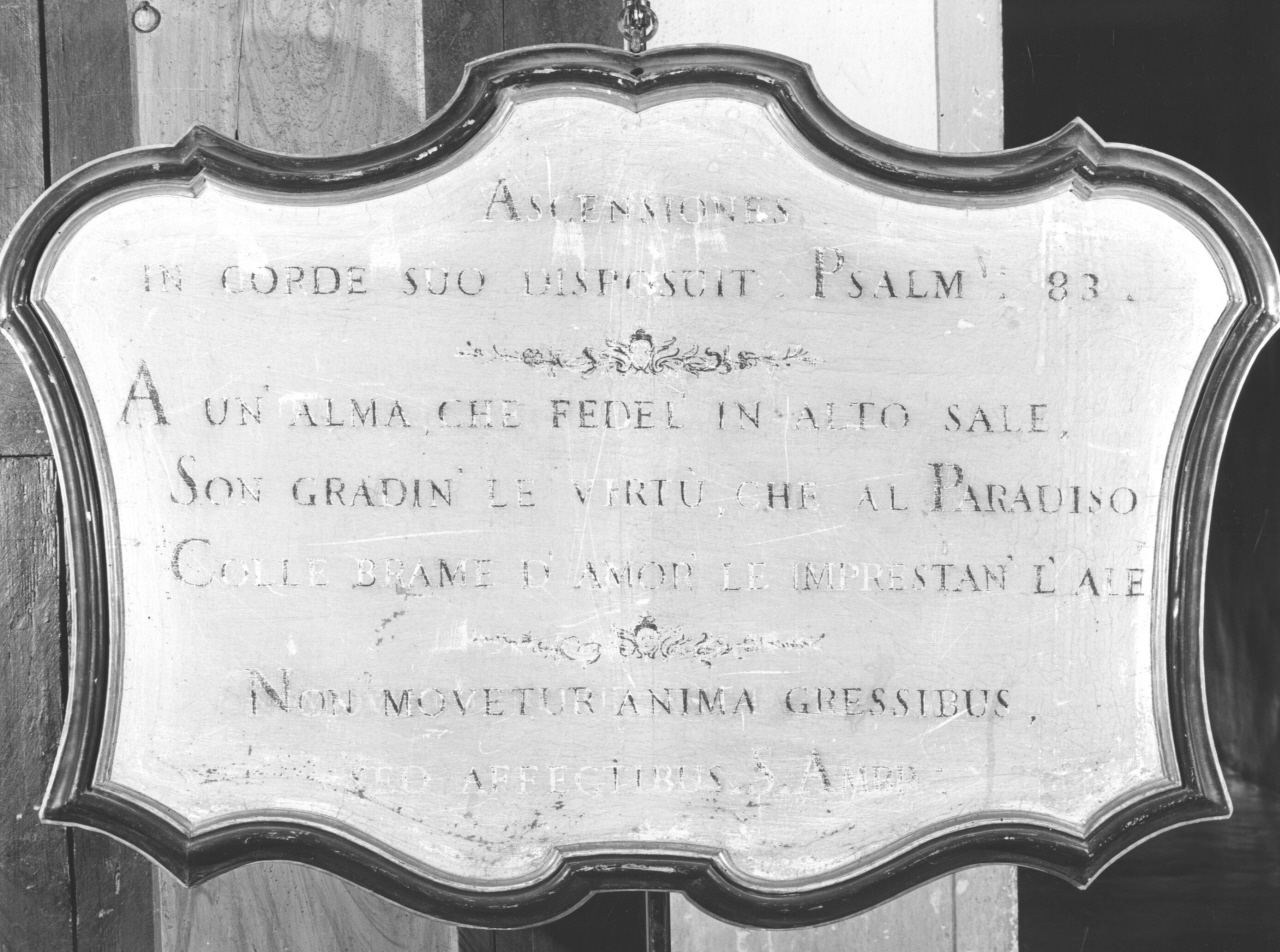 ASCENSIONES
IN CORDE SUO DISPOSUIT. PSALM. 83.
A UN' ALMA, CHE FEDEL IN ALTO SALE,
SON GRADIN' LE VIRTÙ, CHE AL PARADISO
COLLE BRAME D'AMOR' LE IMPRESTAN' L'ALE
NON' MOVETUR ANIMA GRESSIBUS,
SED AFFECTIBUS. S. AMBR.